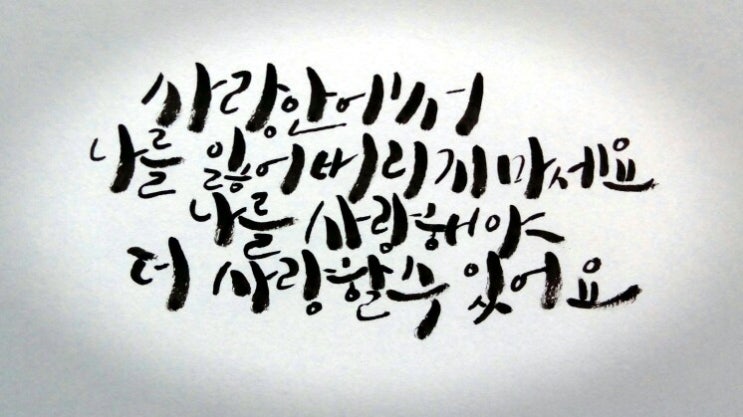 사랑안에서
나를 잃어버리지마세요
나를 사랑해야
더 사랑할수 있어요